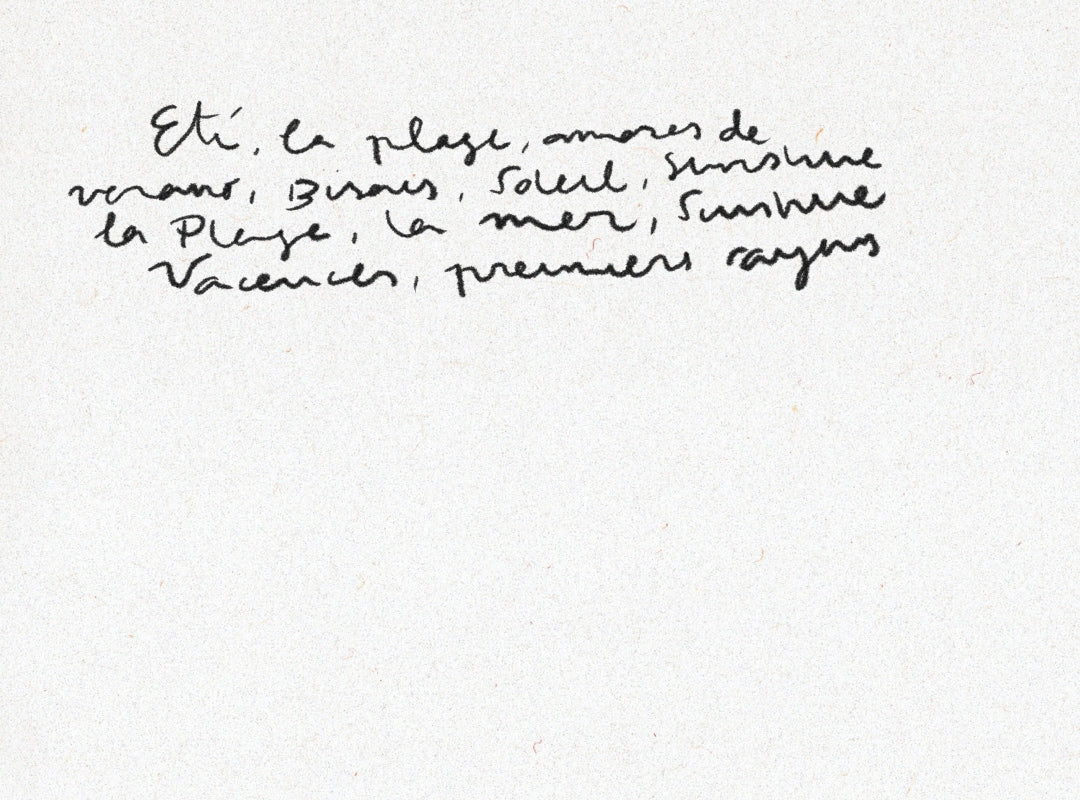 Eté, la plage, amores de
verano, Bisous, Soleil, Sunshine
la Plage, la mer, Sunshine
Vacances, premiers rayons